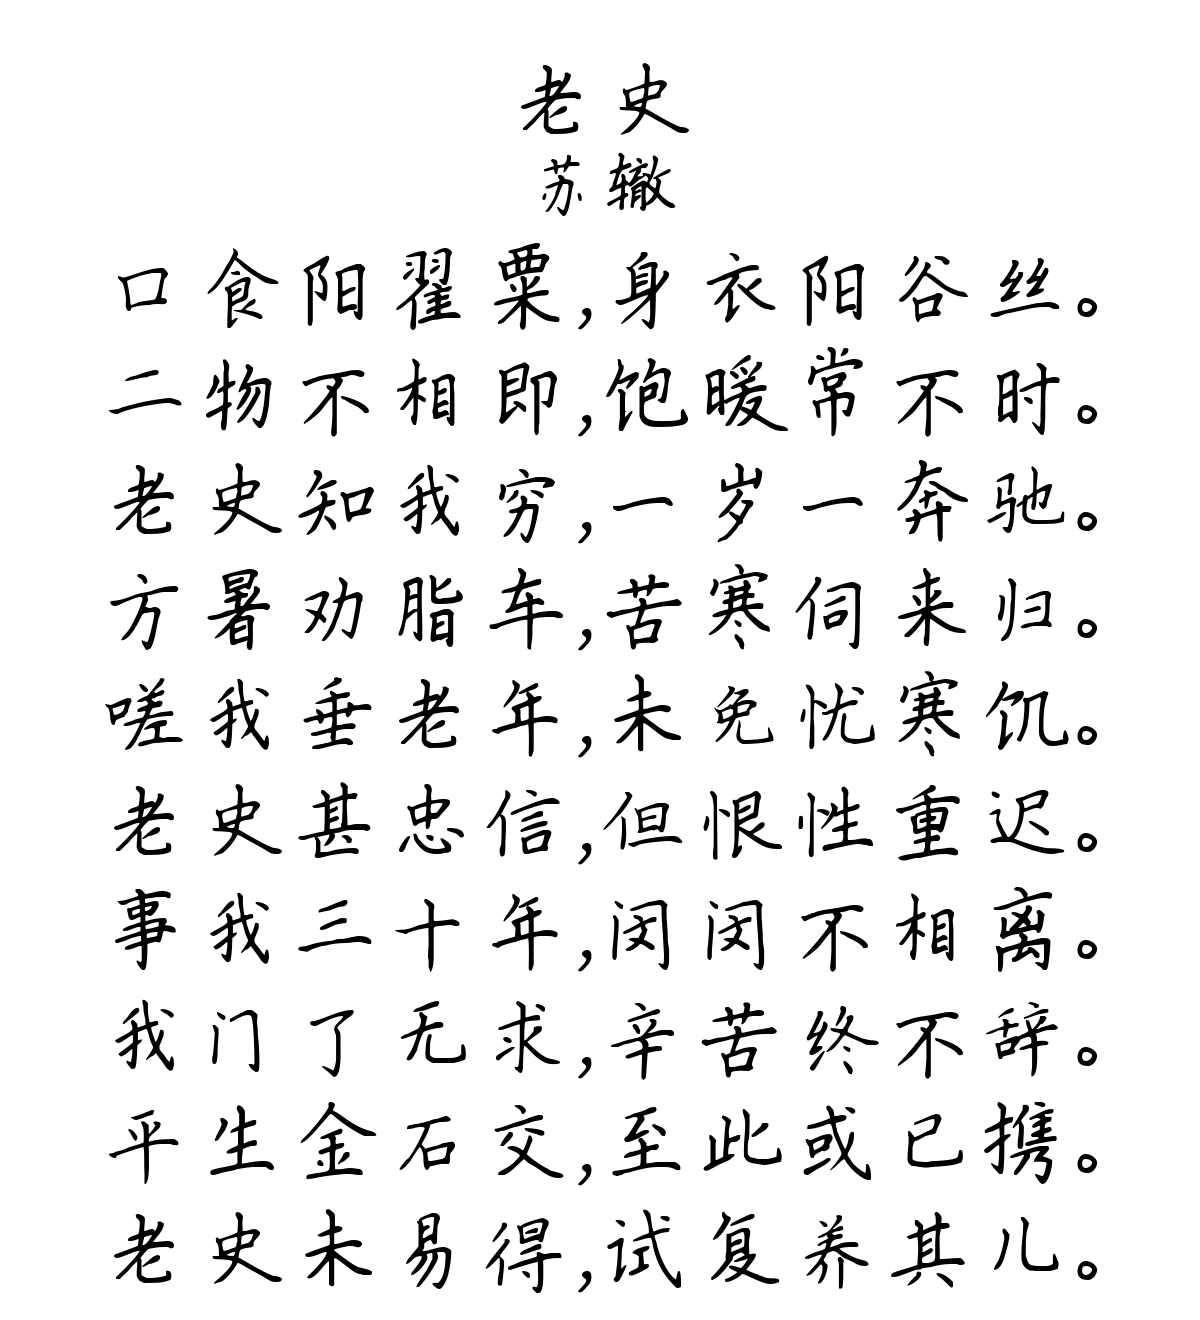 老史
苏辙
口食阳翟粟,身衣阳谷丝。
二物不相即,饱暖常不时。
老史知我穷,一岁一奔驰。
方暑劝脂车,苦寒伺来归。
嗟我垂老年,未免忧寒饥。
老史甚忠信,但恨性重迟。
事我三十年,闵闵不相离。
我门了无求,辛苦终不辞。
平生金石交,至此或已携。
老史未易得,试复养其儿。